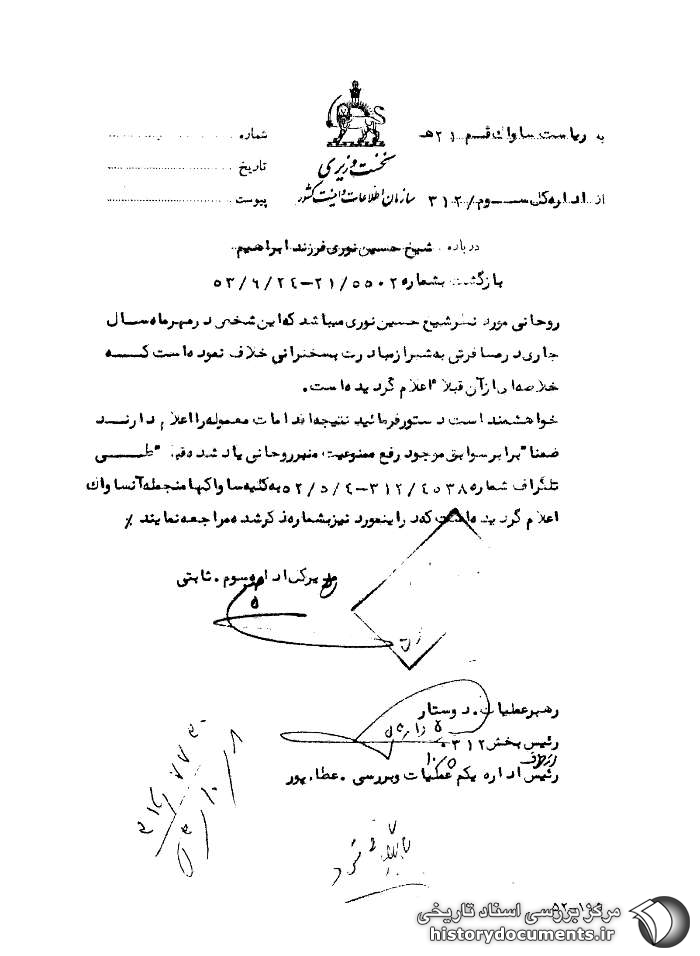 به ریاست ساواك قم ۲۱ه
شماره
نخست وزیری
تاریخ
از اداره کل سوم/ ۳۱۲
سازمان اطلاعات و امنیت کشور
پیوست
درباره شیخ حسین نوری فرزند ابراهیم
بازگشت بشماره ۵۵۰۲/ ۲۱-۵۳/۶/۲۴
روحانی مورد نظر شیخ حسین نوری میباشد که این شخص در مهرماه سال
جاری در مسافرتش به شیراز مبادرت بسخنرانی خلاف نموده است کـــه
خلاصه ای از آن قبلا" اعلام گردیده است.
خواهشمند است دستور فرمائید نتیجه اقدامات معموله را اعلام دارنـد
ضمنا" برابر سوابق موجود رفع ممنوعیت منبر روحانی یاد شده قبلا" طـــی
تلگراف شماره ۴۵۳۸/ ۳۱۲-۵۲/۵/۴ به کلیه ساواکها منجمله آنساواك
اعلام گردیده است که در اینمورد نیز بشماره ذکر شده مراجعه نمایند ٪
مدیر کل اداره سوم . ثابتی
رهبر عملیات . دوستار
رئیس بخش ۳۱۲
از طرف
رئیس اداره یکم عملیات و بررسی . عطاپور
۱۰/۸
بایگانی شود
مرکز بررسی اسناد تاریخی
historydocuments.ir